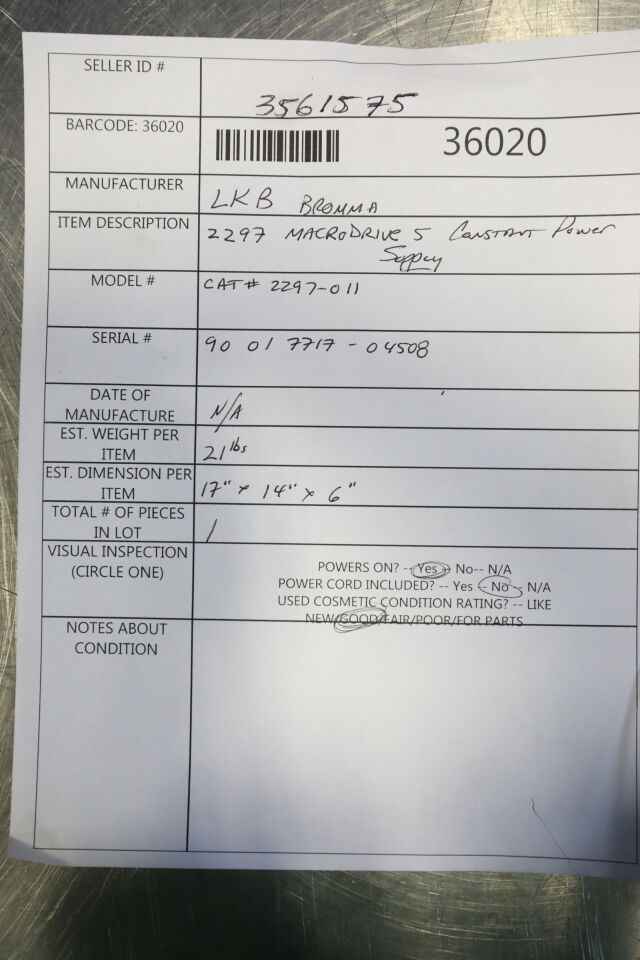 SELLER ID #
3561575
BARCODE: 36020
36020
MANUFACTURER
LKB BROMMA
ITEM DESCRIPTION
2297 MACRODRIVE 5 CONSTANT POWER
SUPPLY
MODEL #
CAT# 2297-011
SERIAL #
90 01 7717 - 04508
DATE OF
MANUFACTURE
N/A
EST. WEIGHT PER
ITEM
21 lbs
EST. DIMENSION PER
ITEM
17" x 14" x 6"
TOTAL # OF PIECES
IN LOT
1
VISUAL INSPECTION
(CIRCLE ONE)
POWERS ON? -- Yes -- No-- N/A
POWER CORD INCLUDED? -- Yes -- No -- N/A
USED COSMETIC CONDITION RATING? -- LIKE
NEW/GOOD/FAIR/POOR/FOR PARTS
NOTES ABOUT
CONDITION